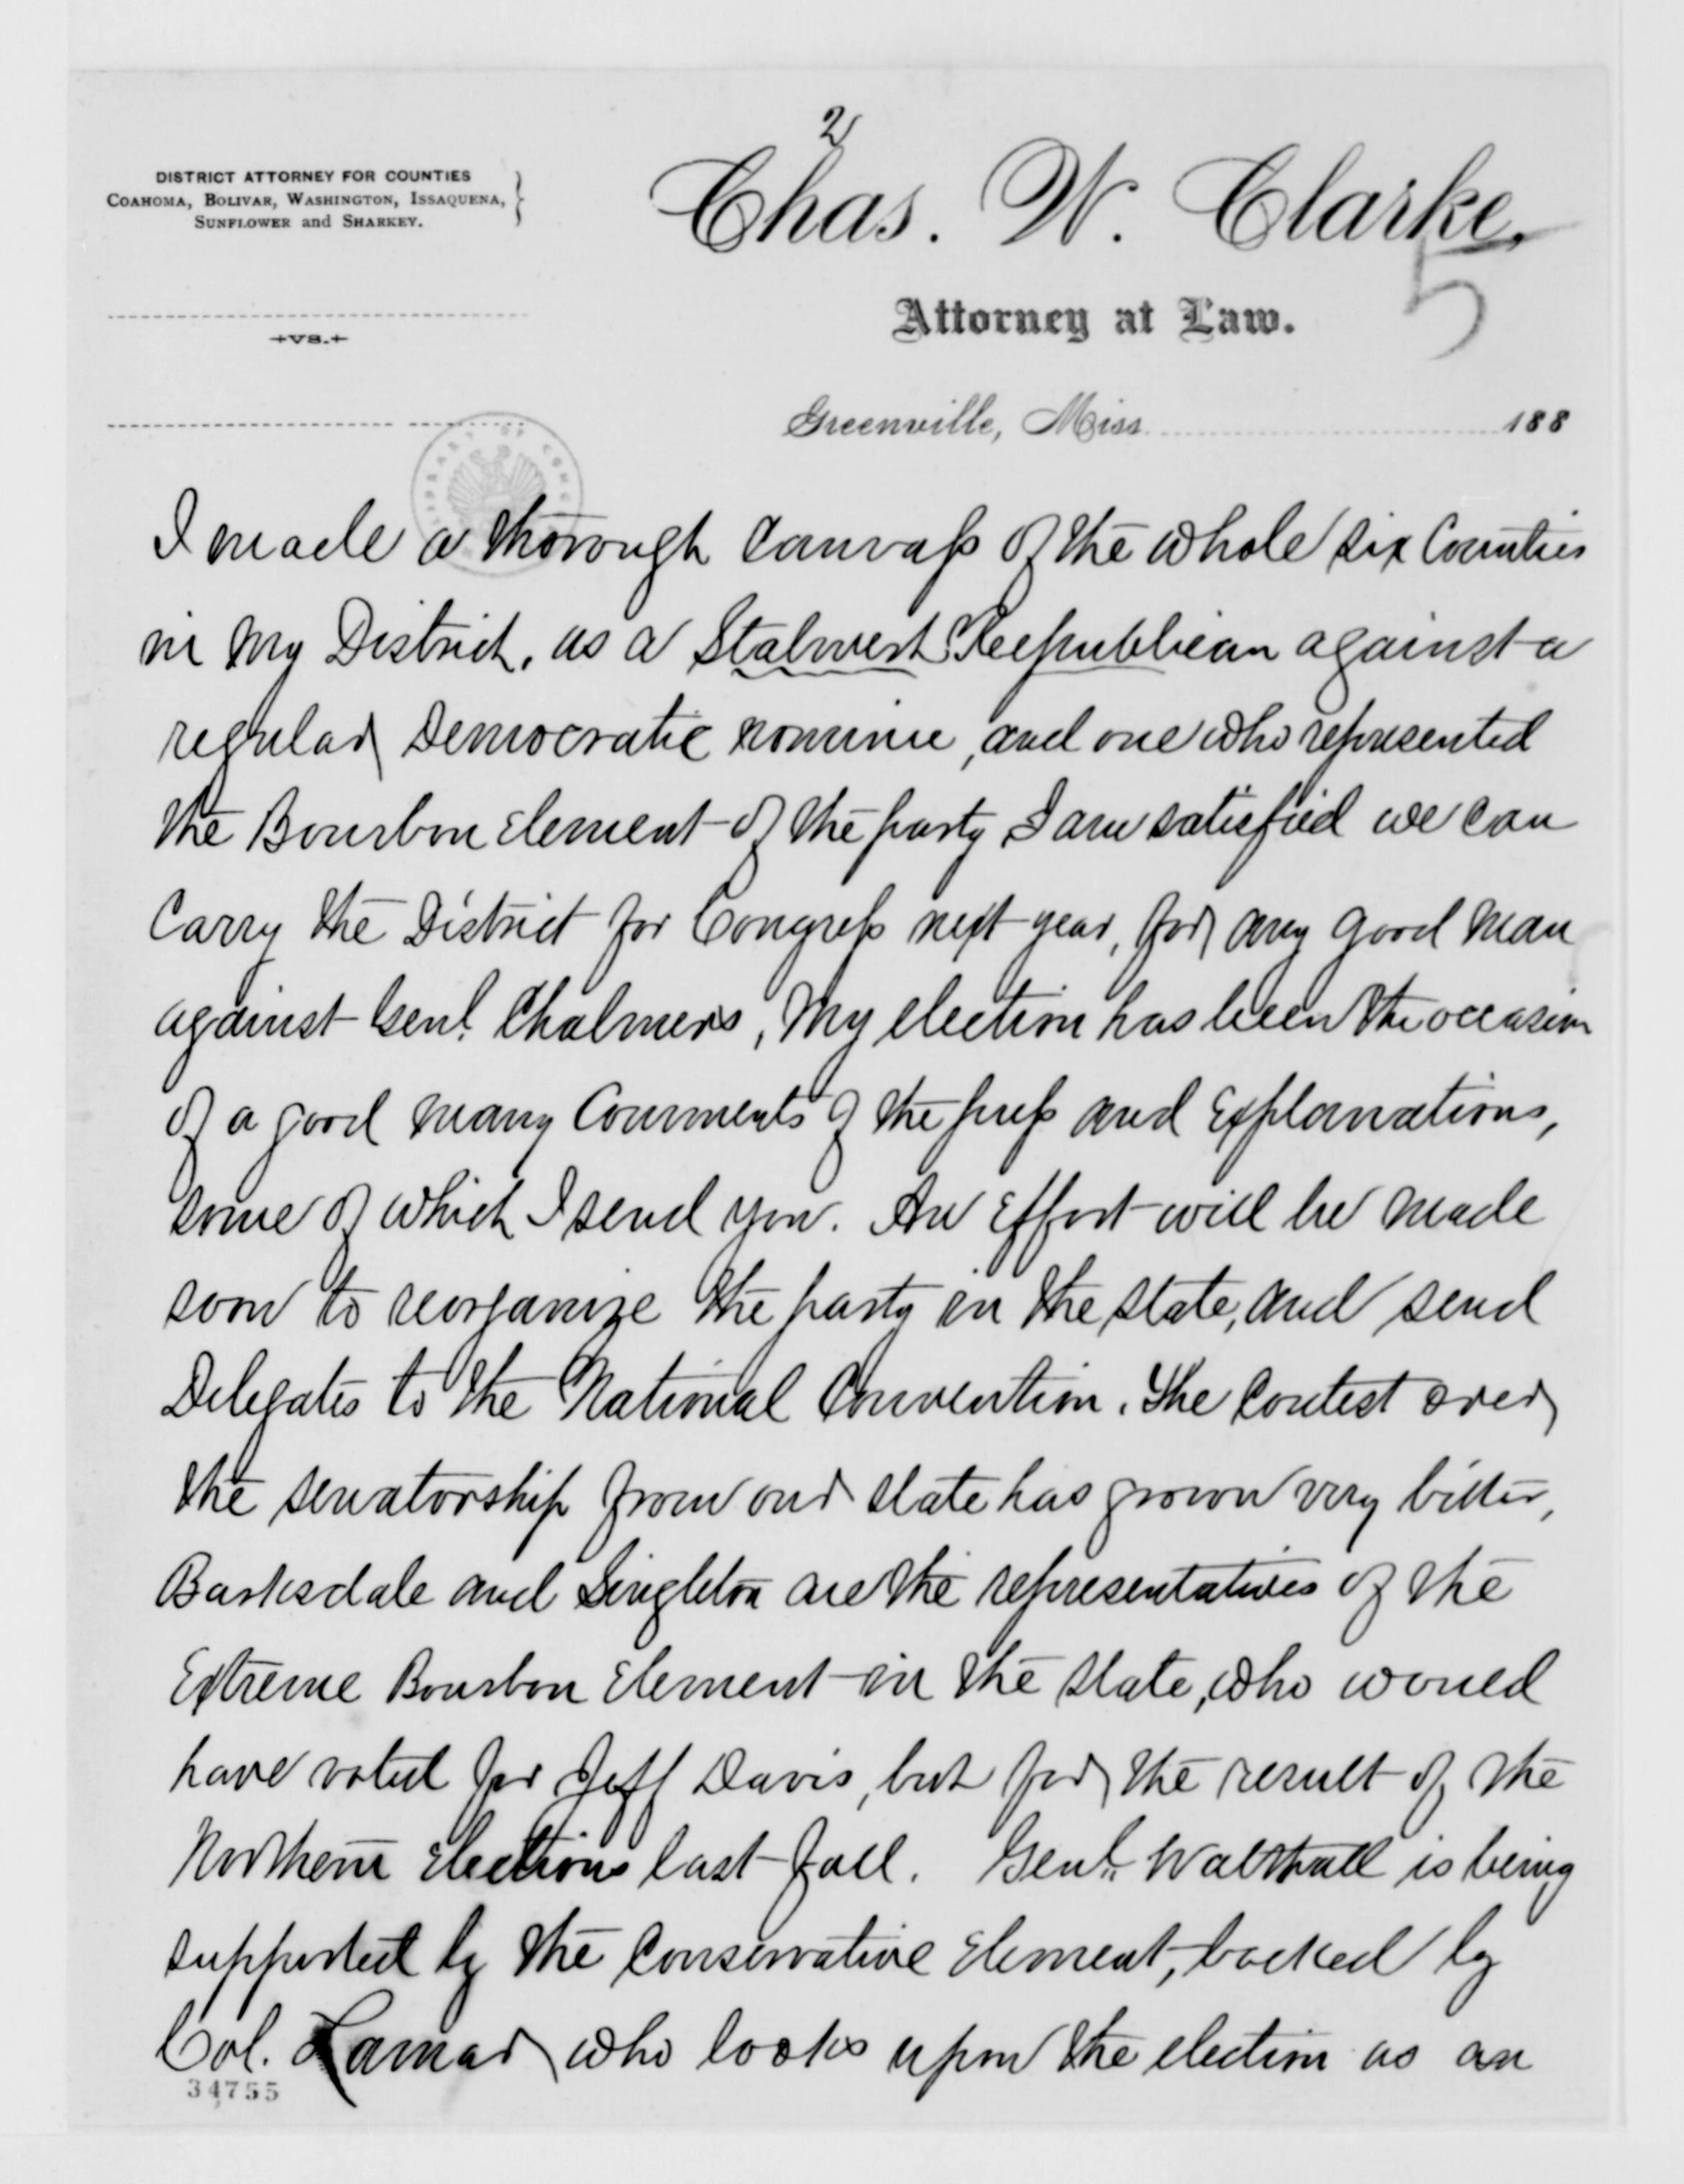 2
DISTRICT ATTORNEY FOR COUNTIES
COAHOMA, BOLIVAR, WASHINGTON, ISSAQUENA,
SUNFLOWER and SHARKEY.
Chas. W. Clarke,
5
Attorney at Law.
+VS.+
Greenville, Miss. 188
LIBRARY OF CONG
I made a thorough canvass of the whole six Counties
in my District, as a Stalwert Republican against a
regular Democratic nominee, and one who represented
the Bourbon element of the party I am satisfied we can
Carry the District for Congress next year, for any good man
against Genl. Chalmers, My election has been the occasion
of a good many Comments of the press and Explanations,
some of which I send you. An Effort will be made
soon to reorganize the party in the state, and send
Delegates to the National Convention. The Contest over
the senatorship from our state has grown very bitter,
Barksdale and Singleton are the representatives of the
Extreme Bourbon Element in the state, who would
have voted for Jeff Davis, but for the result of the
Northern Elections last fall. Genl. Walthall is being
supported by the Conservative Element, backed by
Col. Lamar who looks upon the election as an
34755